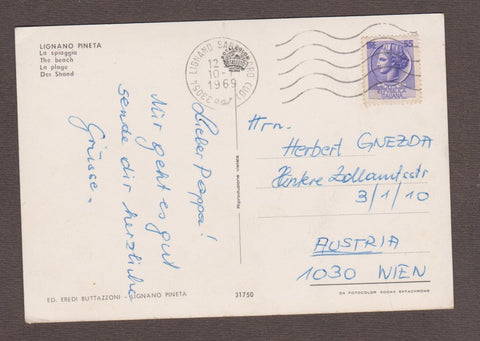 LIGNANO PINETA
La spiaggia
The beach
La plage
Der Strand
33054 LIGNANO SABBIADORO (UD)
12
10
1969
55
ITALIANA
Lieber Pappa!
Mir geht es gut
sende dir herzliche
Grüsse.
Hrn.
Herbert GNEZDA
Hintere Zollamtsstr
3/1/10
AUSTRIA
1030 WIEN
Riproduzione vietata
ED. EREDI BUTTAZZONI - LIGNANO PINETA
31750
DA FOTOCOLOR KODAK EKTACHROME